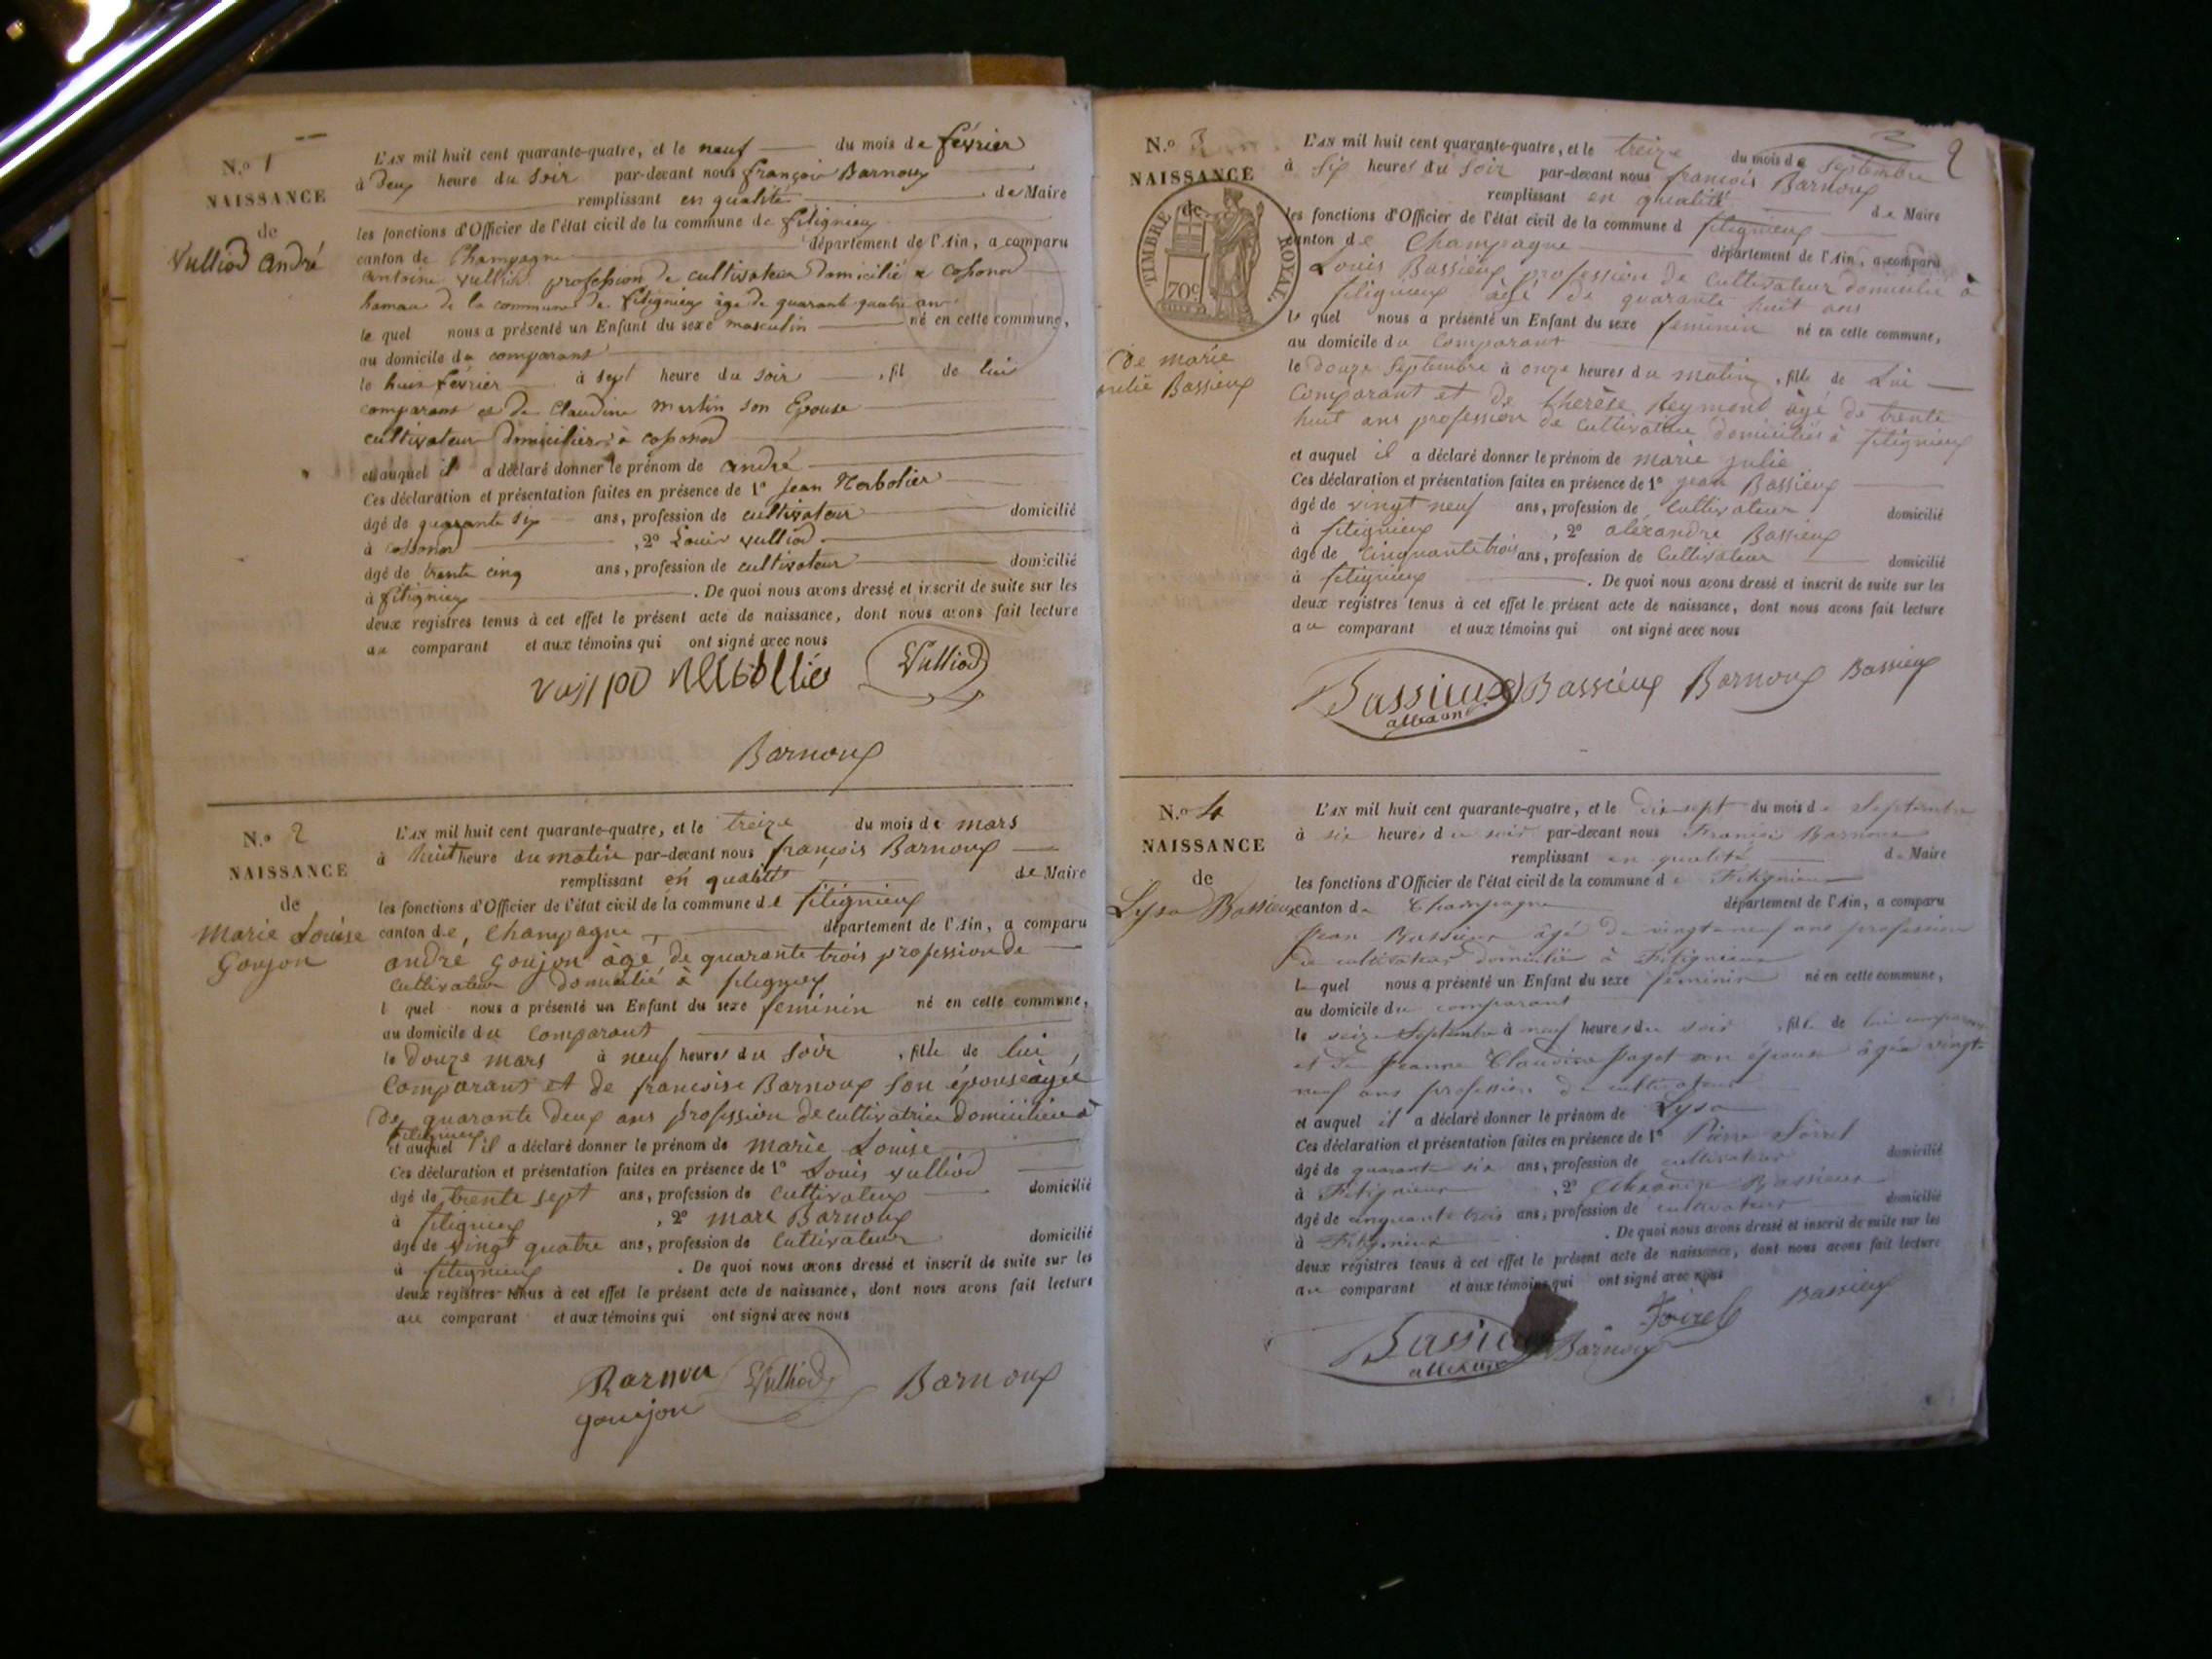 N.o 1
NAISSANCE
de
Vulliod André
L'AN mil huit cent quarante-quatre, et le neuf du mois de février
à deux heure du soir par-devant nous françois Barnoux
remplissant en qualité de Maire
les fonctions d'Officier de l'état civil de la commune de fitignieu
canton de Champagne département de l'Ain, a comparu
antoine vulliod profession de cultivateur domicilié a
hamau de la commune de fitignieu âge de quarante quatre ans
le quel nous a présenté un Enfant du sexe masculin né en cette commune,
au domicile du comparant
le huit février à sept heure du soir , fil de lui
comparant et de Claudine martin son Epouse
cultivateur domicilier à
et auquel il a déclaré donner le prénom de andré
Ces déclaration et présentation faites en présence de 1o jean
âgé de quarante six ans, profession de cultivateur domicilié
à , 2o Louis vulliod
âgé de trente cinq ans, profession de cultivateur domicilié
à fitignieu . De quoi nous avons dressé et inscrit de suite sur les
deux registres tenus à cet effet le présent acte de naissance, dont nous avons fait lecture
au comparant et aux témoins qui ont signé avec nous
Vulliod
Barnoux
N.o 2
NAISSANCE
de
Marie Louise
Goujon
L'AN mil huit cent quarante-quatre, et le treize du mois de mars
à huit heure du matin par-devant nous françois Barnoux
remplissant en qualité de Maire
les fonctions d'Officier de l'état civil de la commune de fitignieux
canton de, Champagne département de l'Ain, a comparu
andré goujon âgé de quarante trois profession de
cultivateur domicilié à fitignieux
l quel nous a présenté un Enfant du sexe féminin né en cette commune,
au domicile du comparant
le douze mars à neuf heures du soir , fille de lui,
comparant et de francoise Barnoux son épouse âgée
de quarante deux ans profession de cultivatrice domiciliée à
fitignieux
et auquel il a déclaré donner le prénom de marie Louise
Ces déclaration et présentation faites en présence de 1o Louis vulliod
âgé de trente sept ans, profession de cultivateur domicilié
à fitignieux , 2o marc Barnoux
âgé de vingt quatre ans, profession de cultivateur domicilié
à fitignieux . De quoi nous avons dressé et inscrit de suite sur les
deux registres tenus à cet effet le présent acte de naissance, dont nous avons fait lecture
au comparant et aux témoins qui ont signé avec nous
Barnou Vulliod Barnoux
goujon
2
N.o 3
NAISSANCE
de
TIMBRE ROYAL
70c
De marie
julie Bassieux
L'AN mil huit cent quarante-quatre, et le treize du mois de septembre
à six heures du soir par-devant nous françois Barnoux
remplissant en qualité de Maire
les fonctions d'Officier de l'état civil de la commune d fitignieux
canton de Champagne département de l'Ain, a comparu
Louis Bassieux profession de cultivateur domicilié à
fitignieux âgé de quarante huit ans
le quel nous a présenté un Enfant du sexe féminin né en cette commune,
au domicile du comparant
le douze septembre à onze heures du matin , fille de Lui
comparant et de thérèse Reymond âgé de trente
huit ans profession de cultivateur domiciliés à fitignieux
et auquel il a déclaré donner le prénom de marie julie
Ces déclaration et présentation faites en présence de 1o jean Bassieux
âgé de vingt neuf ans, profession de cultivateur domicilié
à fitignieux , 2o aléxandre Bassieux
âgé de cinquante trois ans, profession de Cultivateur domicilié
à fitignieux . De quoi nous avons dressé et inscrit de suite sur les
deux registres tenus à cet effet le présent acte de naissance, dont nous avons fait lecture
au comparant et aux témoins qui ont signé avec nous
Bassieux Bassieux Barnoux Bassieux
N.o 4
NAISSANCE
de
Lysa Bassieux
L'AN mil huit cent quarante-quatre, et le dix sept du mois de Septembre
à six heures du soir par-devant nous François Barnoux
remplissant en qualité de Maire
les fonctions d'Officier de l'état civil de la commune de Fitignieux
canton de Champagne département de l'Ain, a comparu
Jean Bassieux âgé de vingt-neuf ans profession
de cultivateur domicilié à Fitignieux
le quel nous a présenté un Enfant du sexe féminin né en cette commune,
au domicile du comparant
le seize Septembre à neuf heures du soir , fille de lui comparant
et de Jeanne Claudine son épouse âgée vingt-
neuf ans profession de cultivateur
et auquel il a déclaré donner le prénom de Lysa
Ces déclaration et présentation faites en présence de 1o Pierre
âgé de quarante six ans, profession de cultivateur domicilié
à Fitignieux , 2o Bassieux
âgé de cinquante trois ans, profession de cultivateur domicilié
à Fitignieux . De quoi nous avons dressé et inscrit de suite sur les
deux registres tenus à cet effet le présent acte de naissance, dont nous avons fait lecture
au comparant et aux témoins qui ont signé avec nous
Bassieux Barnoux Bassieux